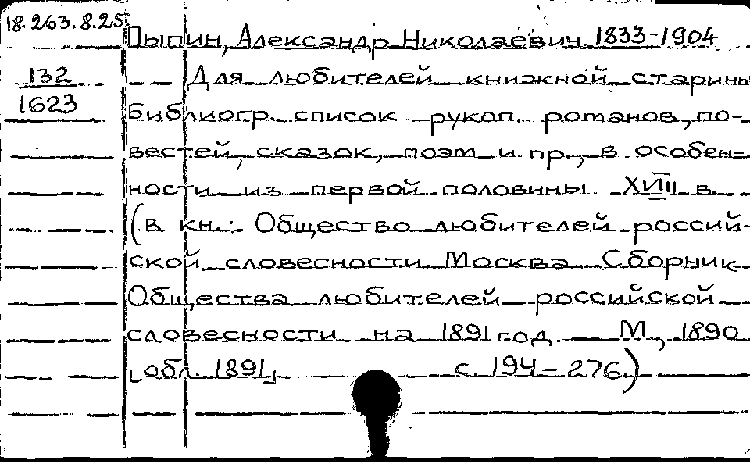 18.263.8.25
Пыпин, Александр Николаевич 1833-1904
132
1623
Для любителей книжной старины
Библиогр. список рукоп. романов, по-
вестей, сказок, поэм и пр., в особен-
ности из первой половины XVIII в.
(в кн.: Общество любителей россий-
ской словесности Москва Сборник
Общества любителей российской
словесности на 1891 год М., 1890
[обл. 1891] с. 194-276.)